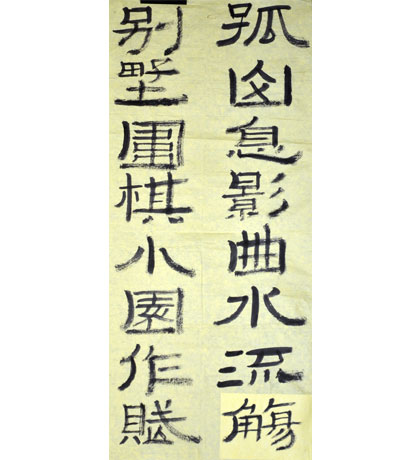 孤囱息影曲水流觴
别墅圍棋小園作賦